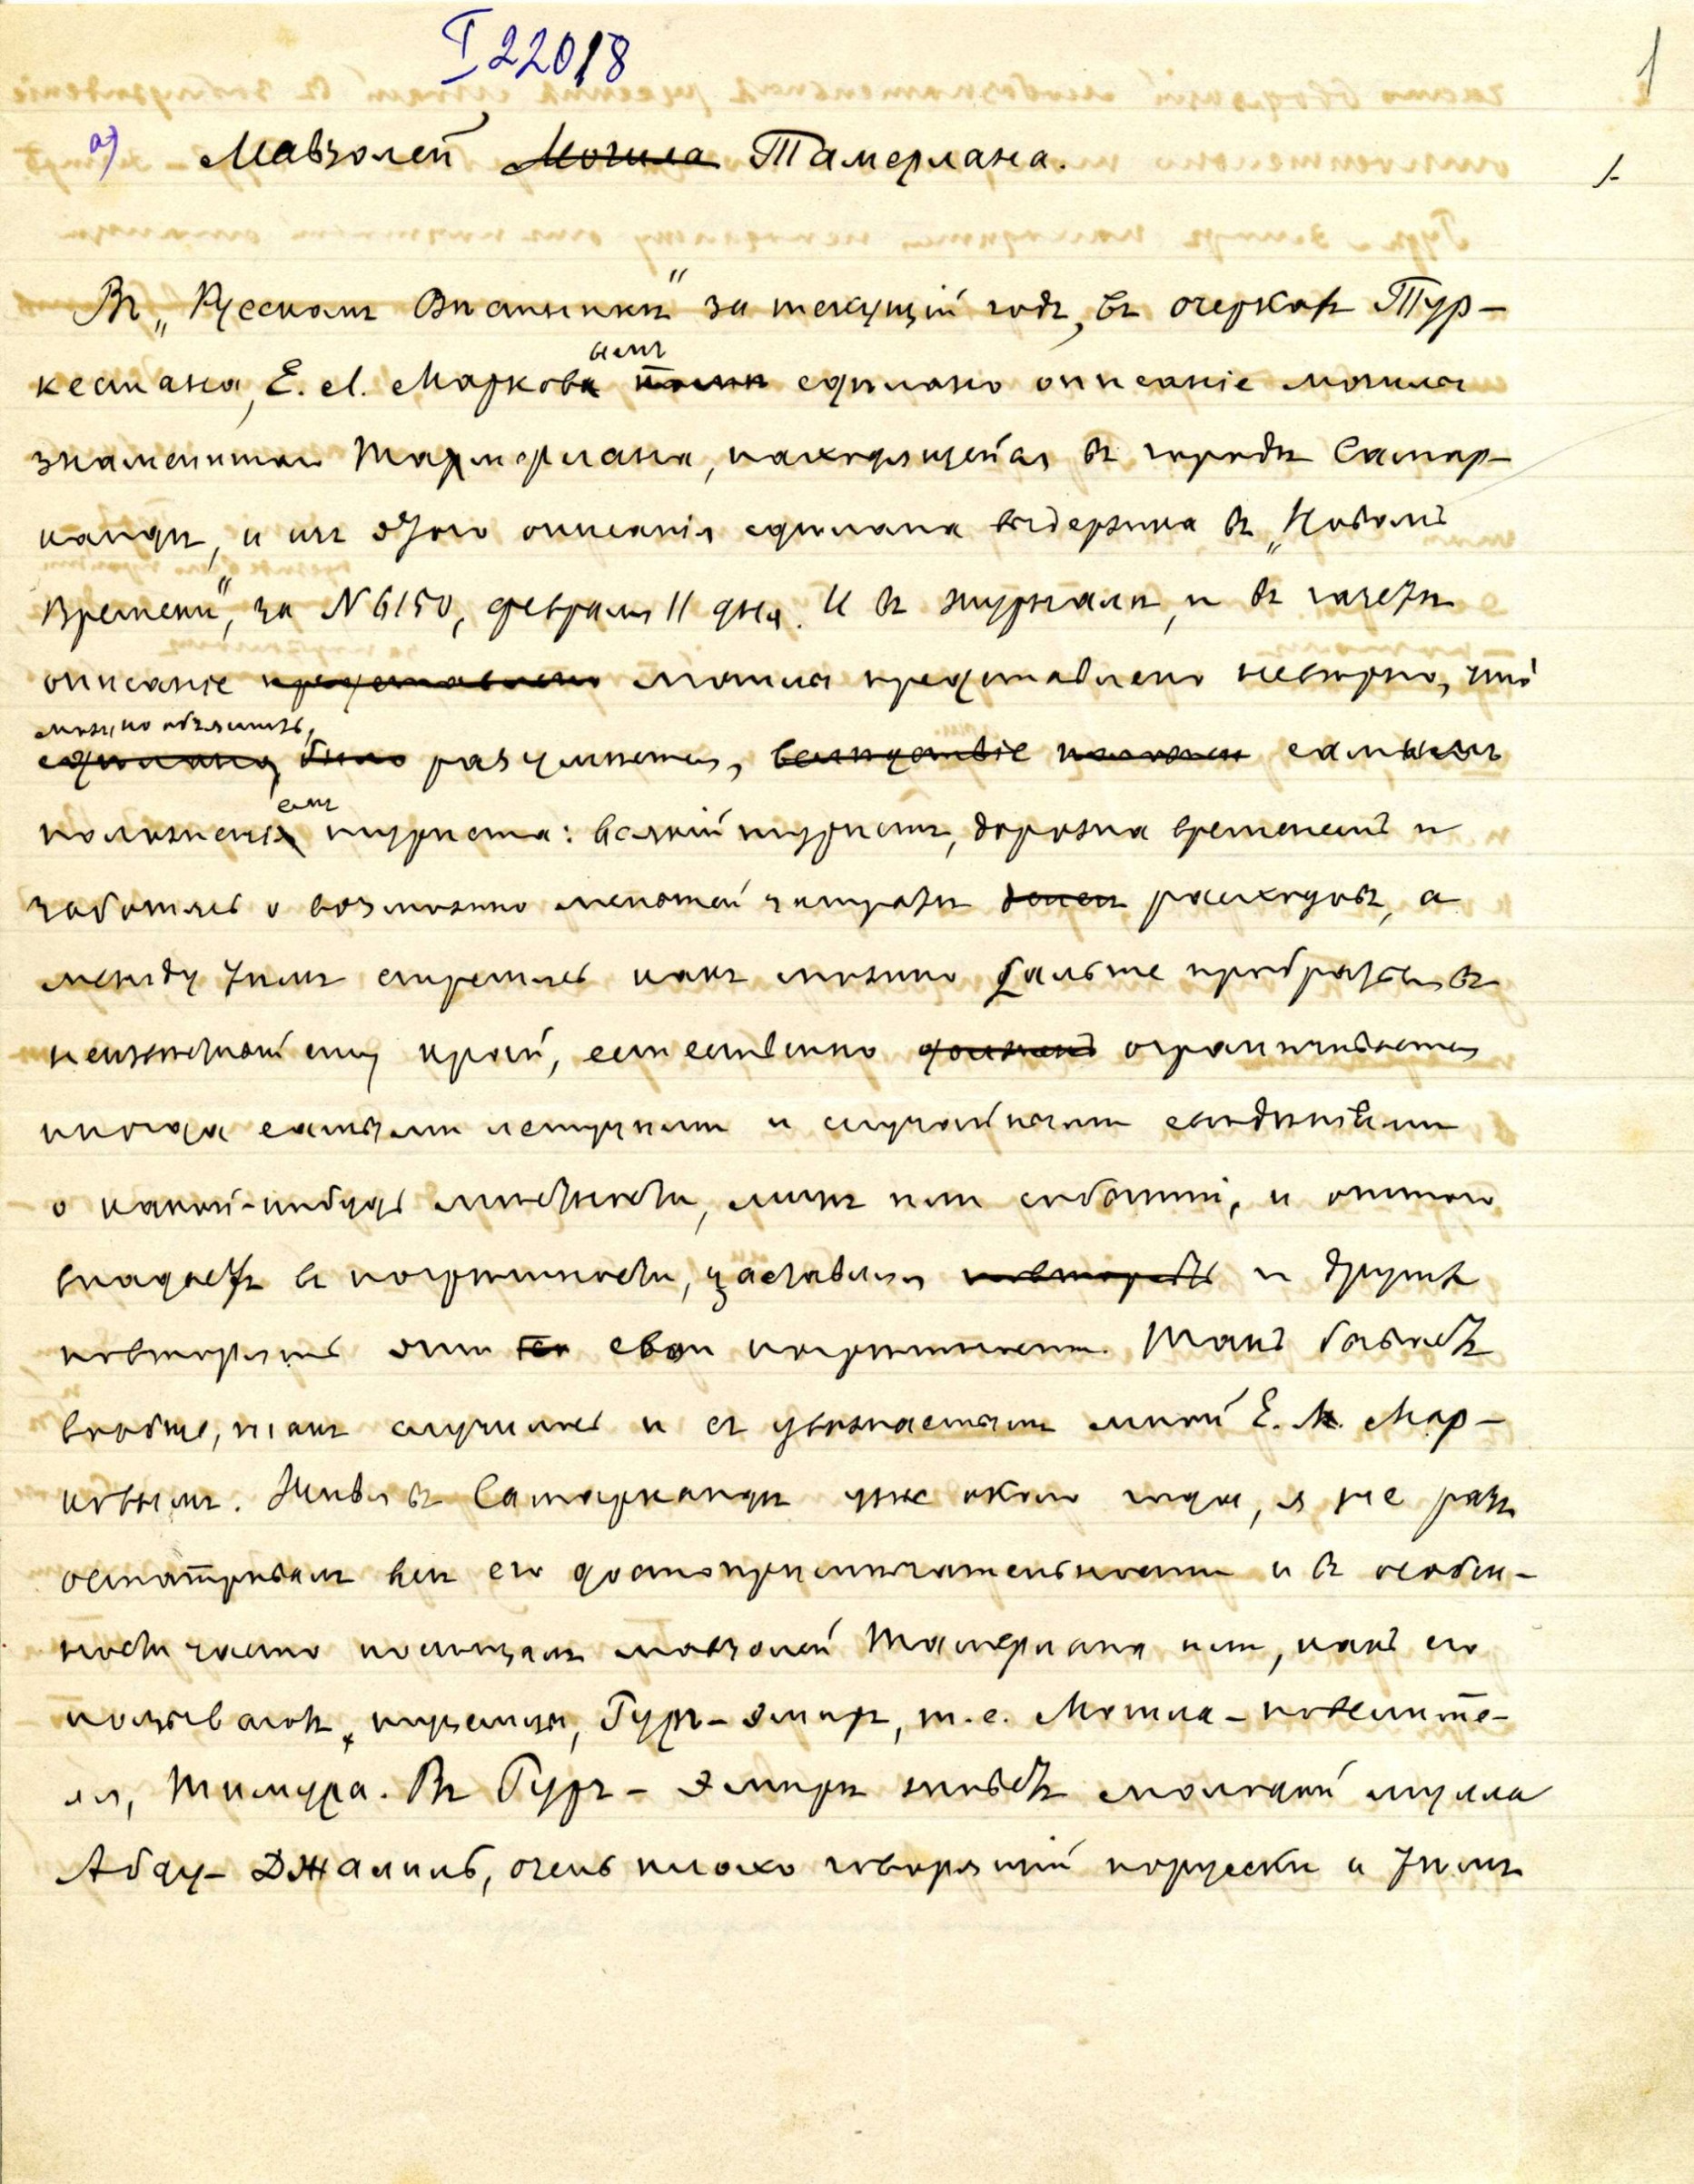 I 22018
1
а) Мавзолей Могила Тамерлана.
1.
Въ „Русскомъ Вѣстникѣ" за текущій годъ, въ очеркахъ Тур-
кестана, Е. Л. Марковымъ сдѣлано описаніе могилы
знаменитаго Тамерлана, находящейся въ городѣ Самар-
кандѣ, и изъ этого описанія сдѣлана выдержка въ „Новомъ
Времени", за № 6150, февраля 11 дня. И въ журналѣ, и въ газетѣ
описаніе представлено могилы представлено невѣрно, что
можно объяснить,
сдѣлано, было разумѣется, вслѣдствіе самымъ
положеніемъ туриста: всякій туристъ, дорожа временемъ и
заботясь о возможно меньшей затратѣ расходовъ, а
между тѣмъ стремясь какъ можно дальше пробраться въ
неизвѣстный ему край, естественно долженъ ограничивается
иногда самыми летучими и случайными свѣдѣніями
о какой-нибудь мѣстности, лицѣ или событіи, и оттого
впадаетъ въ погрѣшности, заставляя повторять и другихъ
повторять эти свои погрѣшности. Такъ бываетъ
вообще, такъ случилось и съ уважаемымъ мной Е. Л. Мар-
ковымъ. Живя въ Самаркандѣ уже около года, я не разъ
осматривалъ всѣ его достопримѣчательности и въ особен-
ности часто посѣщалъ мавзолей Тамерлана или, какъ его
называютъ туземцы, Гуръ-эмиръ, т.е. Могила-повелите-
ля, Тимура. Въ Гуръ-Эмирѣ живетъ молодой мулла
Абду-Джалиль, очень плохо говорящій порусски и тѣмъ